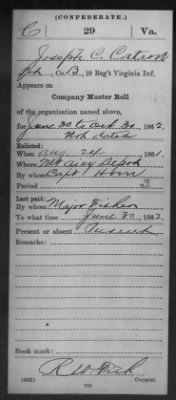 (CONFEDERATE.)
C 29 Va.
Joseph C.
Co. B, 29 Reg't Virginia Inf.
Appears on
Company Muster Roll
of the organization named above,
for June 30 to Oct 30, 1862.
Not dated
Enlisted:
When Aug 24, 1861.
Where Mt Airy Depot
By whom Capt. Horn
Period 3
Last paid:
By whom Major Fisher
To what time June 30, 1862.
Present or absent Present
Remarks:
Book mark:
(642) Copyist.